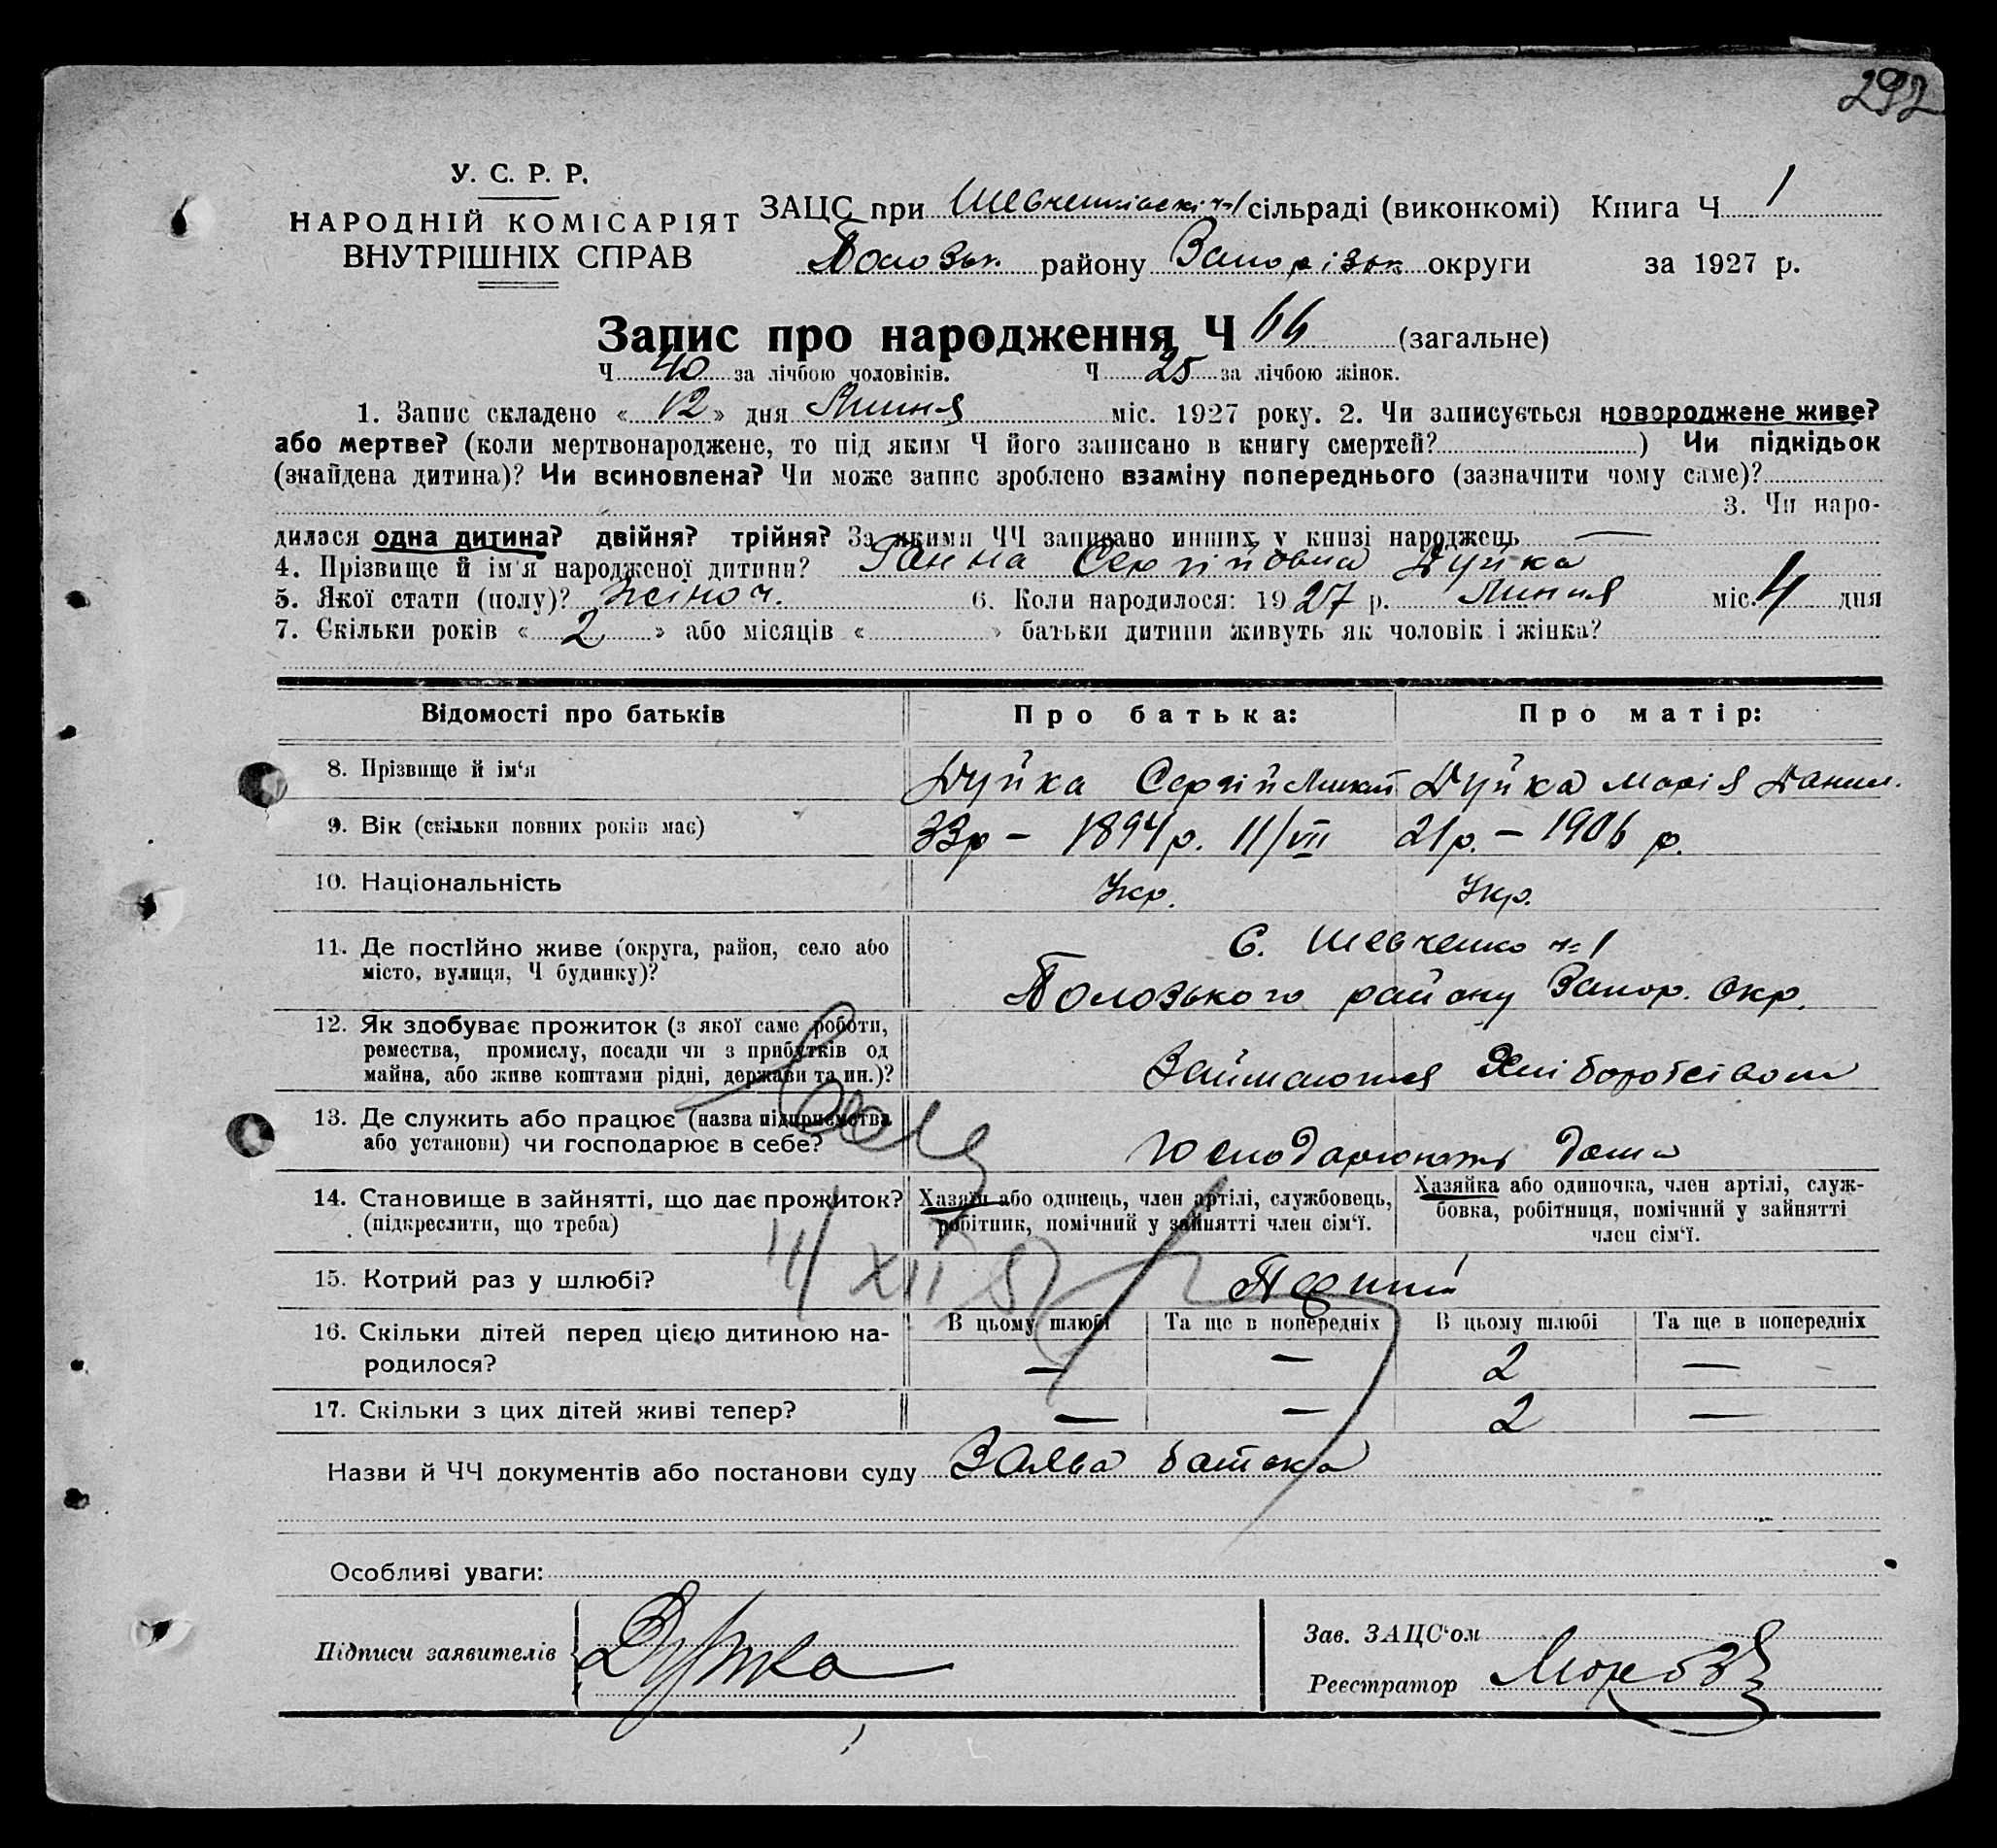 292
У. С. Р. Р.
НАРОДНІЙ КОМІСАРІЯТ
ВНУТРІШНІХ СПРАВ
ЗАЦС при Шевченківскі ч-1 сільраді (виконкомі) Книга Ч 1
Полозьк. району Запорізьк округи за 1927 р.
Запис про народження Ч 66 (загальне)
Ч 40 за лічбою чоловіків. Ч 25 за лічбою жінок.
1. Запис складено « 12 » дня Липня міс. 1927 року. 2. Чи записується новороджене живе?
або мертве? (коли мертвонароджене, то під яким Ч його записано в книгу смертей? ) Чи підкідьок
(знайдена дитина)? Чи всиновлена? Чи може запис зроблено взаміну попереднього (зазначити чому саме)?
3. Чи наро-
дилася одна дитина? двійня? трійня? За якими ЧЧ записано инших у книзі народжень —
4. Прізвище й ім'я народженої дитини? Ганна Сергійовна Дуйка
5. Якої стати (полу)? Жіноч. 6. Коли народилося: 1927 р. Липня міс. 4 дня
7. Скільки років « 2 » або місяців « » батьки дитини живуть як чоловік і жінка?
Відомості про батьків Про батька: Про матір:
8. Прізвище й ім'я Дуйка Сергій Микит Дуйка Марія Данил.
9. Вік (скільки повних років має) 33р – 1894р. 11/VII 21р. – 1906 р.
10. Національність Укр. Укр.
11. Де постійно живе (округа, район, село або С. Шевченко ч-1
місто, вулиця, Ч будинку)? Полозького району Запор. Окр.
12. Як здобуває прожиток (з якої саме роботи,
ремества, промислу, посади чи з прибутків од
майна, або живе коштами рідні, держави та ин.)? Займаються Хліборобством
13. Де служить або працює (назва підприємства
або установи) чи господарює в себе? Господарюють дома
14. Становище в зайнятті, що дає прожиток? Хазяїн або одинець, член артілі, службовець, Хазяйка або одиночка, член артілі, служ-
(підкреслити, що треба) робітник, помічний у зайнятті член сім'ї. бовка, робітниця, помічний у зайнятті
член сім'ї.
15. Котрий раз у шлюбі? Перший
16. Скільки дітей перед цією дитиною на- В цьому шлюбі Та ще в попередніх В цьому шлюбі Та ще в попередніх
родилося? — — 2 —
17. Скільки з цих дітей живі тепер? — — 2 —
Назви й ЧЧ документів або постанови суду Заява батька
Особливі уваги:
Підписи заявителів Дуйка
Зав. ЗАЦС'ом
Реєстратор